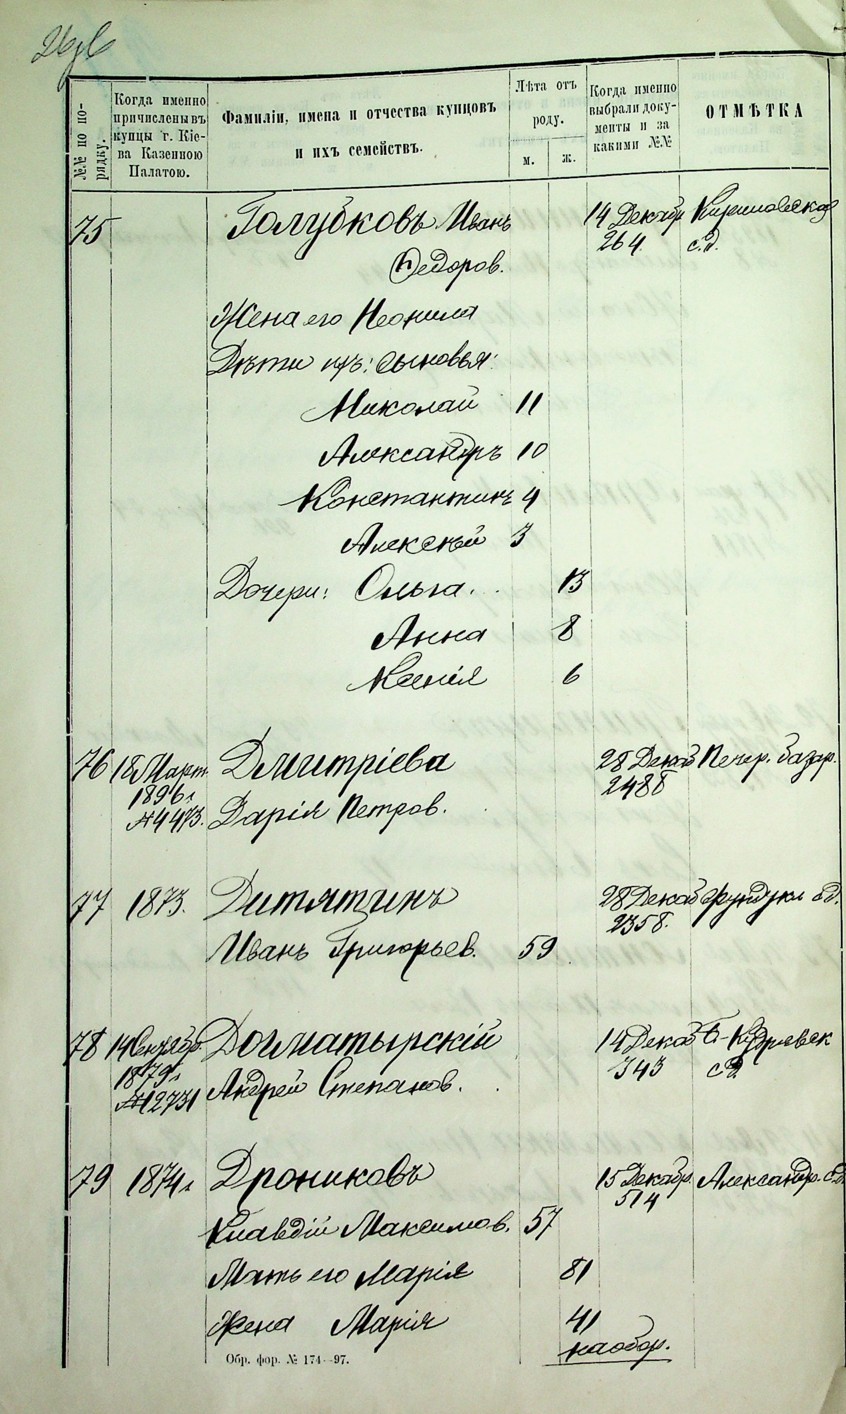 №№ по по-
рядку.
Когда именно
причислены въ
купцы г. Кіе-
ва Казенною
Палатою.
Фамиліи, имена и отчества купцовъ
и ихъ семействъ.
Лѣта отъ
роду.
м.
ж.
Когда именно
выбрали доку-
менты и за
какими №№
ОТМѢТКА
75 Голубковъ Иванъ 14 Декабр
Ѳедоров. 264
Жена его Неонила
Дѣти ихъ: сыновья:
Николай 11
Александръ 10
Константинъ 4
Алексѣй 3
Дочери: Ольга. 13
Анна 8
Ксенія 6
76 18 Март. Дмитріева 28 Декаб Печер. базар.
1896 г. 2488
№ 4473. Дарія Петров.
77 1873. Дитятинъ 28 Декаб Фундукл с.д.
2358.
Иванъ Григорьев. 59
78 14 Сентябр. Догматырскій 14 Декаб Б-Кудрявск
1879 г. 343 с.д.
№ 12731 Андрей Степанов.
79 1874 г. Дрониковъ 15 Декабр. Александр. с.д.
514
Клавдій Максимов. 57
Мать его Марія 81
Жена Марія 41
на обор.
Обр. фор. № 174—97.